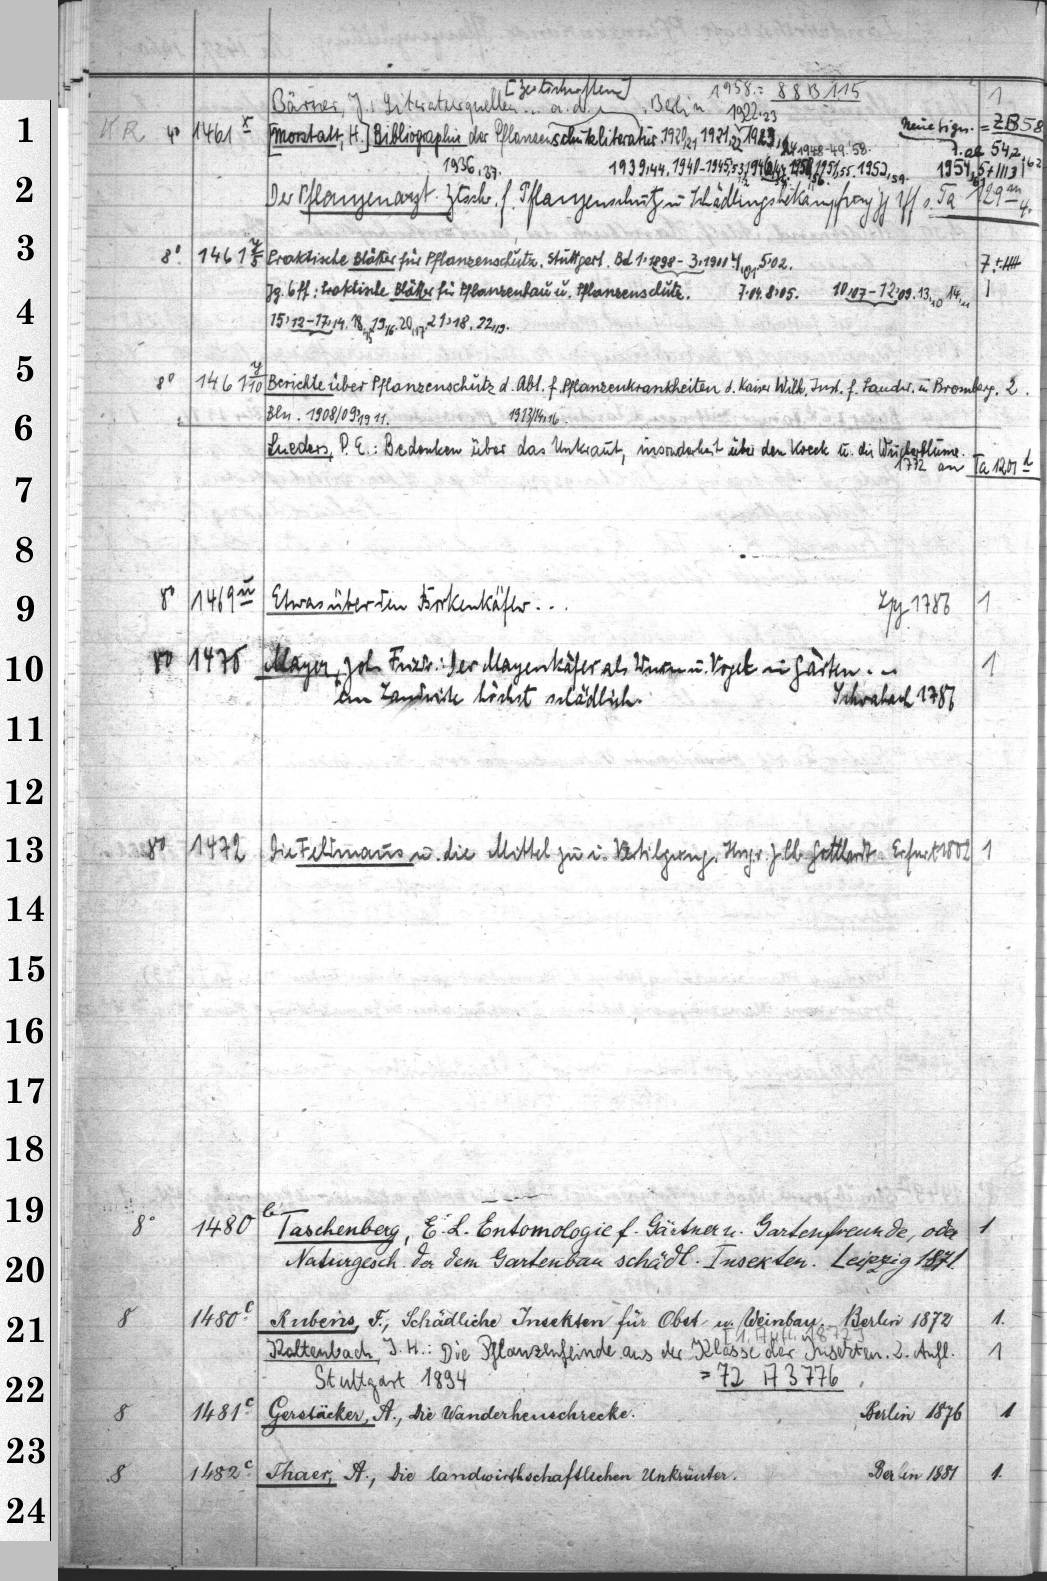 Bärner, J.: Literaturquellen ... a. d. [Zeitschriften] Berlin 1958. = 88 B 115 1
1922.23
1 KR 4° 1461 x [Morstatt, H.] Bibliographie der Pflanzenschutzliteratur. 1920/21 1921/22 1923 Neue Sign. = ZB 58
1936,37. 1939,44. 1940-1945 1953 1954
2 Der Pflanzenarzt. Ztschr. f. Pflanzenschutz u. Schädlingsbekämpfung s. Ta 129 m 4.
3 8° 1461 y/5 Praktische Blätter für Pflanzenschutz. Stuttgart. Bd 1.1898 - 3.1900 5.02. 7.
Jg. 6 ff: Praktische Blätter für Pflanzenbau u. Pflanzenschutz. 7.04. 8.05. 10.07-12.09. 13,10 14,11
4 15,12-17,14. 18,15 19,16. 20,17. 21,18. 22,19.
5 8° 1461 y/10 Berichte über Pflanzenschutz d. Abt. f. Pflanzenkrankheiten d. Kaiser Wilh. Inst. f. Landw. in Bromberg. 2.
6 Bln. 1908/09. 1911. 1913/14.16.
Lueders, P. E.: Bedenken über das Unkraut, insonderheit über den Koeck u. die Wucherblume.
1772 an Ta 1201
7
8
9 8° 1469 n Etwas über den Borkenkäfer ... Lpz 1786 1
10 8° 1475 Mayer, Joh. Fridr.: Der Mayenkäfer als Wurm u. Vogel in Gärten ...
am Landvieh höchst schädlich. Schwabach 1786 1
11
12
13 8° 1472 Die Feldmaus u. die Mittel zu i. Vertilgung. Hrsg. J. Cb. Gotthardt Erfurt 1802 1
14
15
16
17
18
19 8° 1480 b Taschenberg, E. L. Entomologie f. Gärtner u. Gartenfreunde, oder 1
20 Naturgesch. der dem Gartenbau schädl. Insekten. Leipzig 1871.
21 8 1480 c Rubens, F., Schädliche Insekten für Obst- u. Weinbau. Berlin 1872 1.
[1. Aufl. 1872]
Kaltenbach, J. H.: Die Pflanzenfeinde aus der Klasse der Insekten. 2. Aufl. 1
22 Stuttgart 1894 = 72 A 3776
8 1481 c Gerstäcker, A., Die Wanderheuschrecke. Berlin 1876 1
23 8 1482 c Thaer, A., Die landwirthschaftlichen Unkräuter. Berlin 1881 1.
24